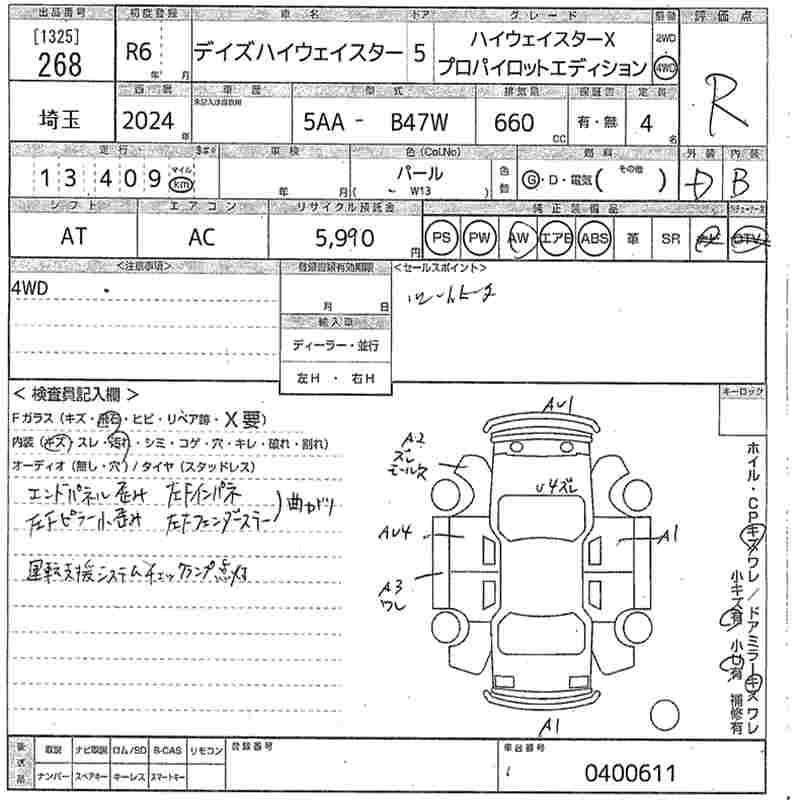 出品番号 初度登録 車名 ドア グレード 駆動 評価点
[1325]
268
R6 年 月
デイズハイウェイスター
5
ハイウェイスターX
プロパイロットエディション
2WD
・
4WD
R
西暦 車歴 型式 排気量 保証書 定員
未記入は自家用
埼玉
2024 年
5AA - B47W
660 CC
有・無
4 名
走行 車検 色(Col.No) 燃料 外装 内装
13,409
マイル
km
年 月
パール
( - W13 )
色替
G・D・電気( その他 )
D
B
シフト エアコン リサイクル預託金 純正装備品
AT
AC
5,990 円
PS PW AW エアB ABS 革 SR ナビ DTV
<注意事項> 登録書類有効期限 <セールスポイント>
4WD
月 日
輸入車
ディーラー・並行
左H ・ 右H
< 検査員記入欄 >
キーロック
Fガラス(キズ・飛石・ヒビ・リペア跡・X要)
内装(キズ・スレ・汚れ・シミ・コゲ・穴・キレ・破れ・割れ)
オーディオ(無し・穴)/タイヤ(スタッドレス)
エンドパネル歪み 左Fインパネ
左Fピラー小歪み 左Fフェンダーステー
)曲がり
運転支援システムチェックランプ点灯
AU1
A2
ズレ
U4ズレ
AU4
A1
A3
ワレ
A1
ホイル・CPキズワレ/ドアミラーキズワレ
小キズ有 小U有 補修有
後送品
取説 ナビ取説 ロム/SD B-CAS リモコン
ナンバー スペアキー キーレス スマートキー
登録番号
車台番号
0400611